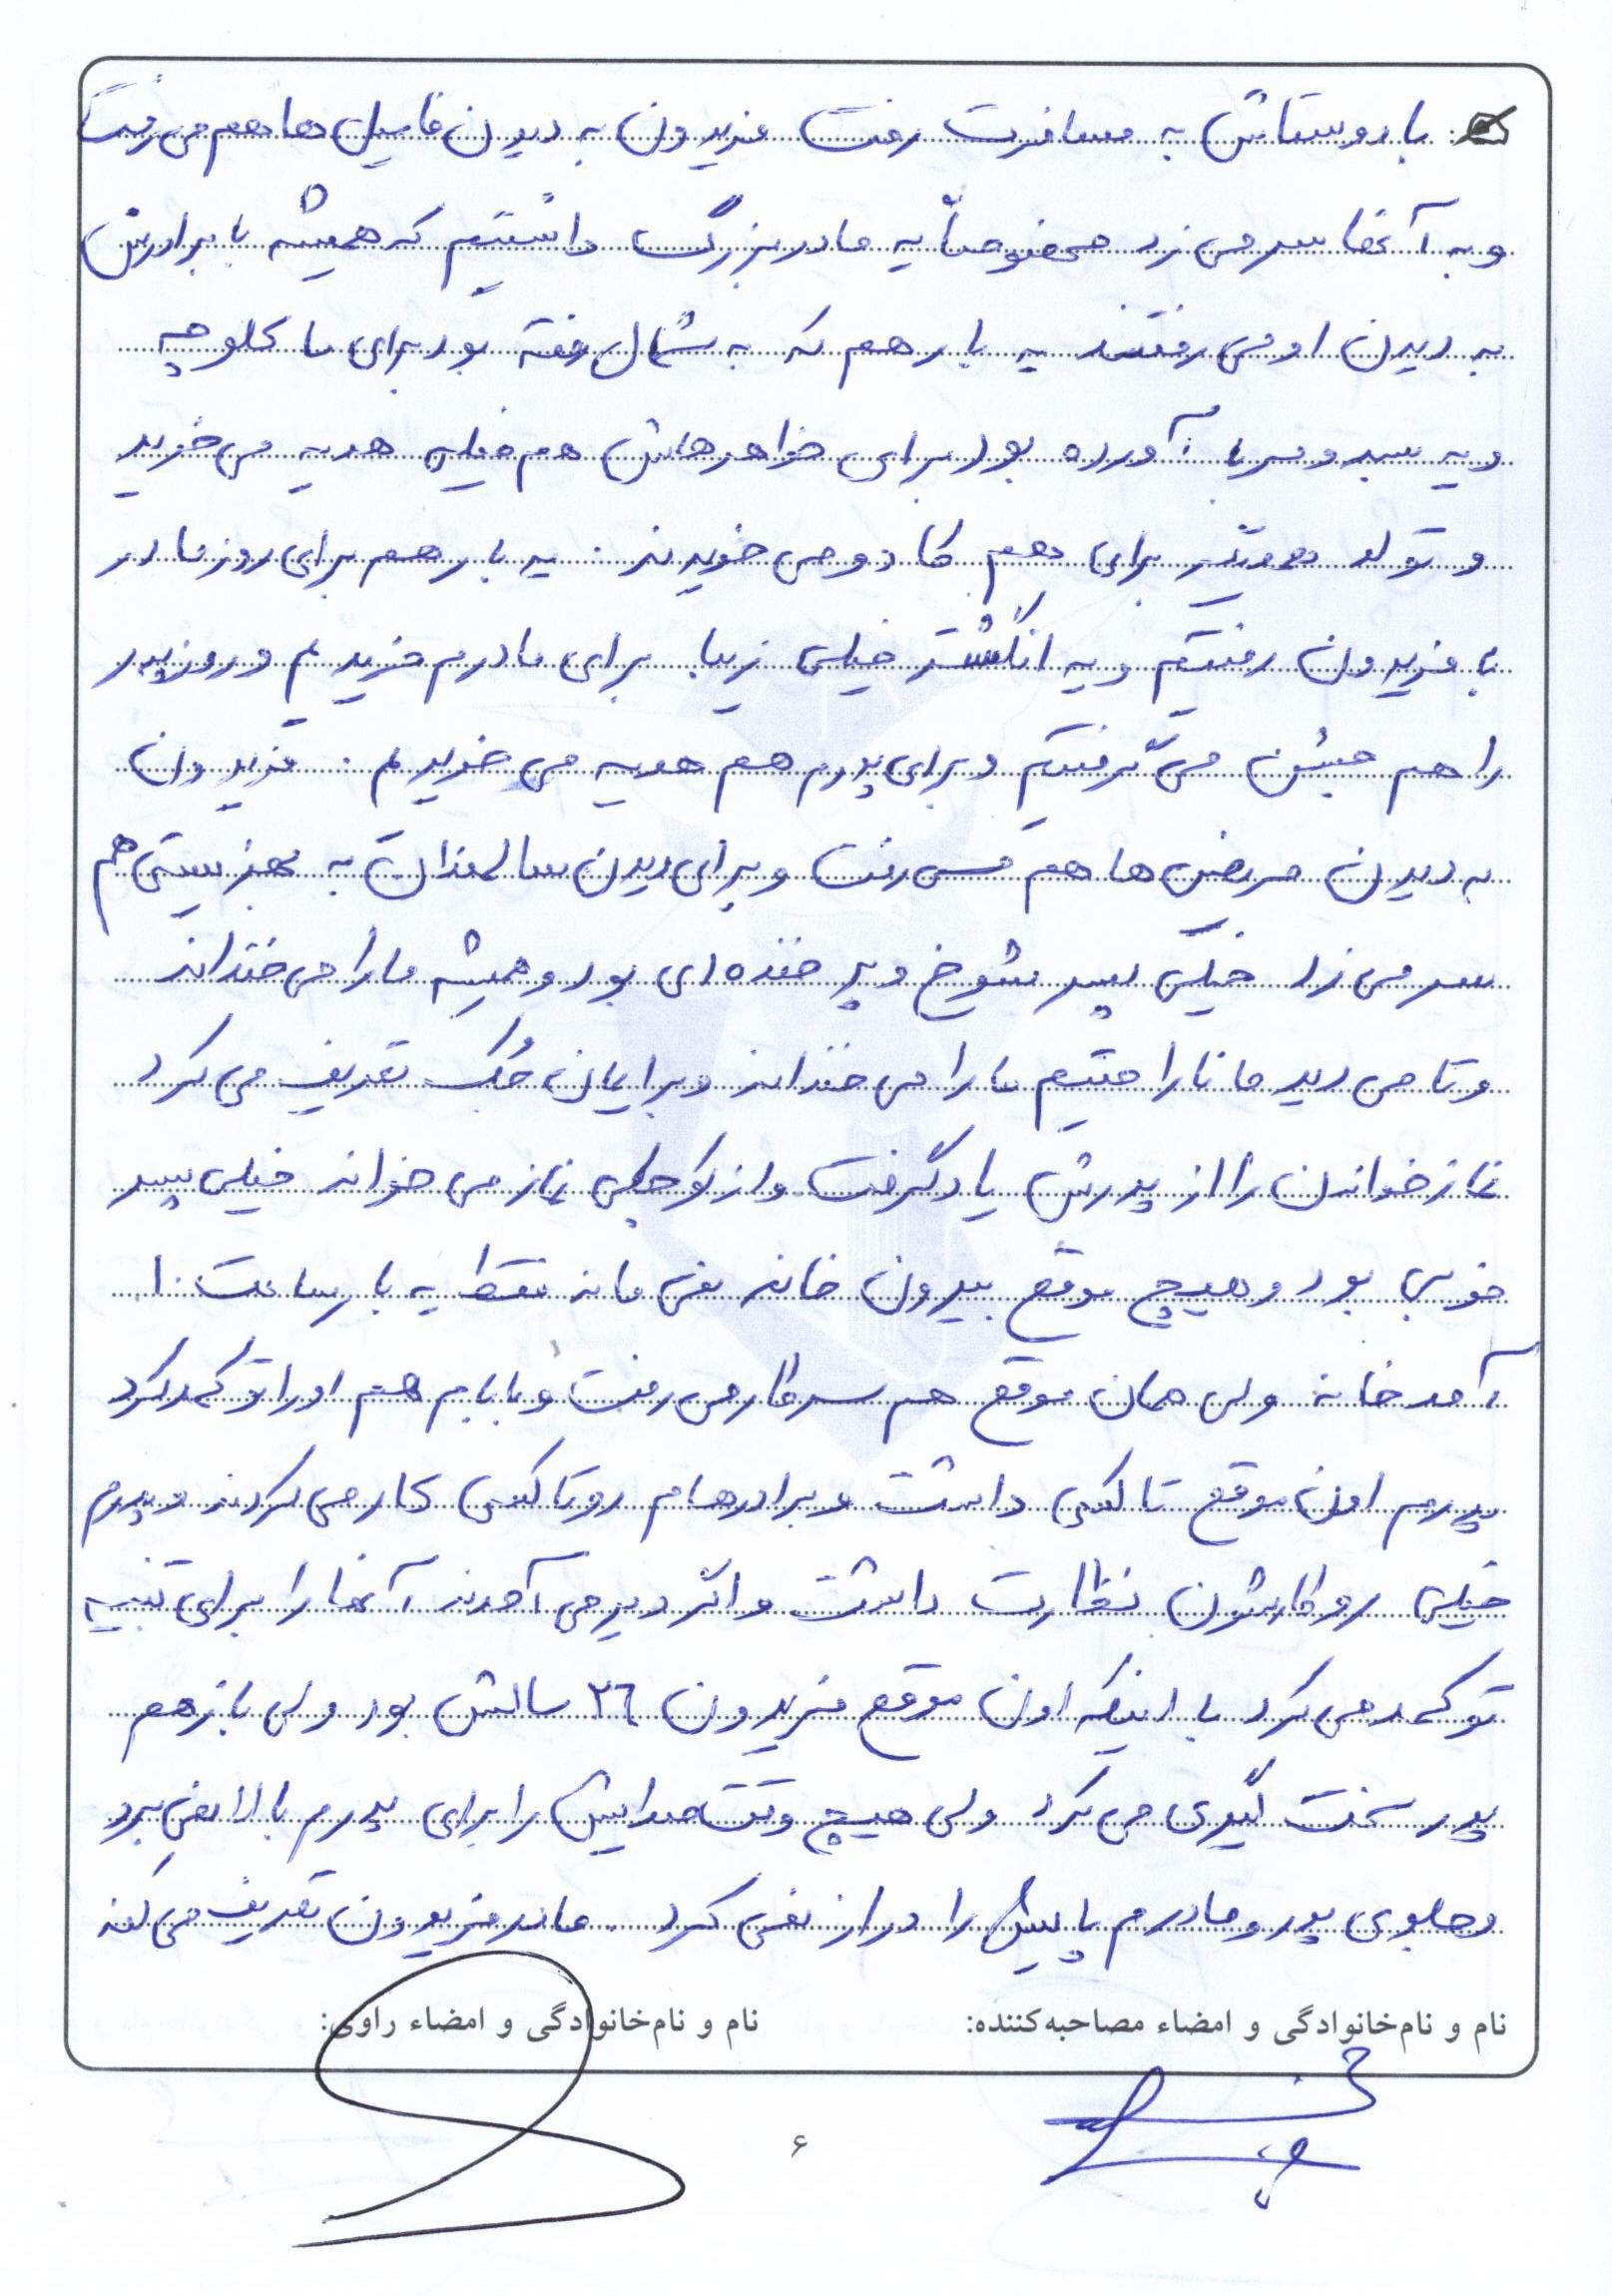 با دوستاش به مسافرت رفت فریدون به دیدن فامیل ها هم می رفت
و به آنها سر می زد مخصوصاً یه مادربزرگ داشتیم که همیشه با برادرش
به دیدن او می رفتند یه بار هم که به شمال رفته بود برای ما کلوچه
و یه سبد آورده بود برای خواهرهاش هم خیلی هدیه می خرید
و تولد برای هم کادو می خریدند. یه بار هم برای روز مادر
با فریدون رفتیم و یه انگشتر خیلی زیبا برای مادرم خریدیم و روز پدر
را هم جشن می گرفتیم و برای پدرم هم هدیه می خریدیم. فریدون
به دیدن مریض ها هم می رفت و برای دیدن سالمندان به بهزیستی هم
سر می زد خیلی پسر شوخ و پر خنده ای بود و همیشه ما را می خنداند
و تا می دید ما ناراحتیم ما را می خنداند و برایمان جُک تعریف می کرد
نماز خواندن را از پدرش یاد گرفت و از کوچکی نماز می خواند خیلی پسر
خوبی بود و هیچ موقع بیرون خانه نمی ماند فقط یه بار ساعت ۱۰
آمد خانه ولی همان موقع هم سر کار می رفت و بابام هم او را تو کمد کرد
پدرم اون موقع تاکسی داشت و برادرهام رو تاکسی کار می کردند و پدرم
خیلی رو کارشون نظارت داشت و اگر دیر می آمدند آنها را برای تنبیه
تو کمد می کرد با اینکه اون موقع فریدون ۲۶ سالش بود ولی باز هم
پدر سخت گیری می کرد ولی هیچ وقت صدایش را برای پدرم بالا نمی برد
و جلوی پدر و مادرم پایش را دراز نمی کرد. مادر فریدون تعریف می کند
نام و نام‌خانوادگی و امضاء مصاحبه‌کننده: نام و نام‌خانوادگی و امضاء راوی:
۶